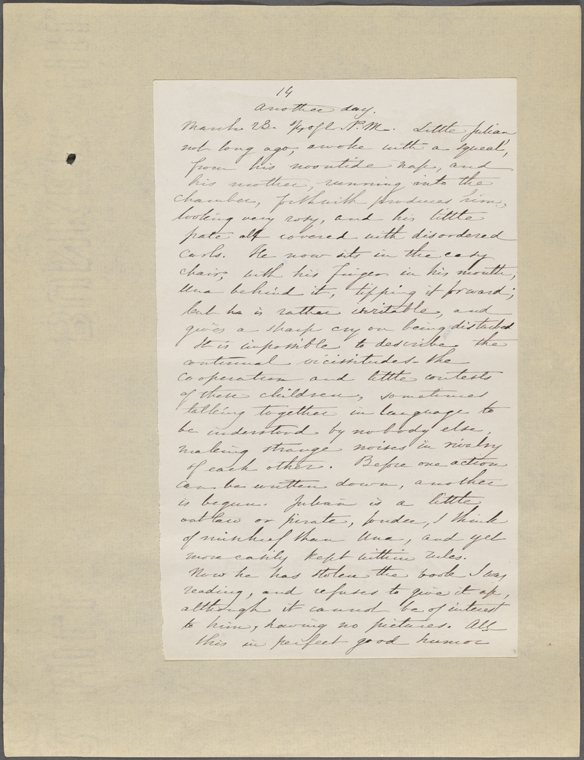 14
Another day.
March 23. ½ past P.M. Little Julian
not long ago, awoke with a squeal,
from his noontide nap, and
his mother, running into the
chamber, forthwith produces him,
looking very rosy, and his little
pate all covered with disordered
curls. He now sits in the easy
chair, with his finger in his mouth,
Una behind it, tipping it forward;
but he is rather irritable, and
gives a sharp cry on being disturbed
It is impossible to describe the
continual vicissitudes the
cooperation and little contests
of these children, sometimes
talking together in language to
be understood by nobody else,
making strange noises in rivalry
of each other. Before one action
can be written down, another
is begun. Julian is a little
outlaw or pirate, fonder, I think
of mischief than Una, and yet
more easily kept within rules.
Now he has stolen the book I was
reading, and refuses to give it up,
although it cannot be of interest
to him, having no pictures. All
this in perfect good humor